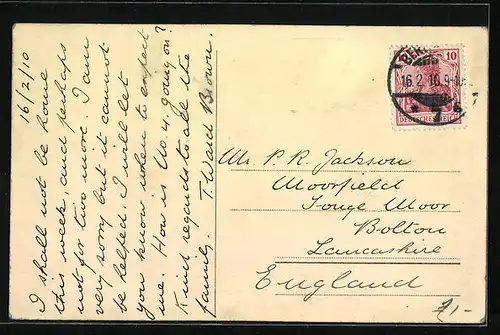 16/2/10
I shall not be home
this week and perhaps
not for two more. I am
very sorry but it cannot
be helped. I will let
you know when to expect
me. How is No. 4. going on?
Kind regards to all the
family. T. Ward Brown.
BERLIN
16.2.10.9-10
10
DEUTSCHES REICH
Mr. P. R. Jackson
Moorfield
Tonge Moor
Bolton
Lancashire
England